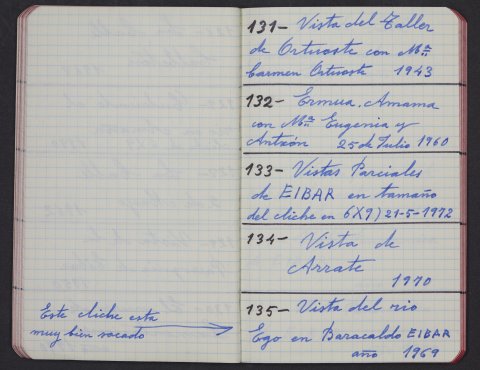 Este cliche esta
muy bien sacado
131- Vista del Taller
de Ortuoste con Mª
Carmen Ortuoste 1943
132- Ermua. Amama
con Mª Eugenia y
Antxón 25 de Julio 1960
133- Vistas Parciales
de EIBAR en tamaño
del cliche en 6X9) 21-5-1972
134- Vista de
Arrate
1970
135- Vista del rio
Ego en Baracaldo EIBAR
año 1969